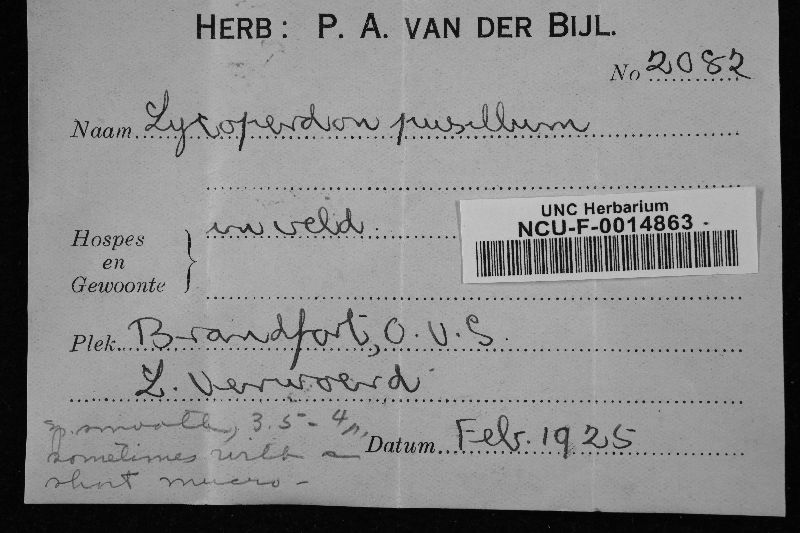 HERB: P. A. VAN DER BIJL.
No 2082
Naam Lycoperdon pusillum
Hospes en Gewoonte } in veld
UNC Herbarium
NCU-F-0014863
Plek Brandfort, O.V.S.
L. Verwoerd
Datum Feb. 1925
sp. smooth, 3.5-4µ,
sometimes with a
short mucro-